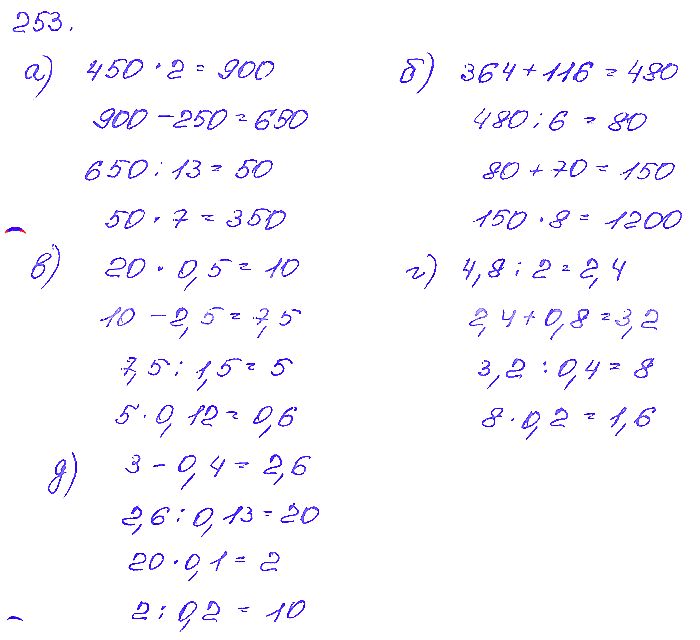 253.
а) 450 · 2 = 900
900 - 250 = 650
650 : 13 = 50
50 · 7 = 350
б) 364 + 116 = 480
480 : 6 = 80
80 + 70 = 150
150 · 8 = 1200
в) 20 · 0,5 = 10
10 - 2,5 = 7,5
7,5 : 1,5 = 5
5 · 0,12 = 0,6
г) 4,8 : 2 = 2,4
2,4 + 0,8 = 3,2
3,2 : 0,4 = 8
8 · 0,2 = 1,6
д) 3 - 0,4 = 2,6
2,6 : 0,13 = 20
20 · 0,1 = 2
2 : 0,2 = 10